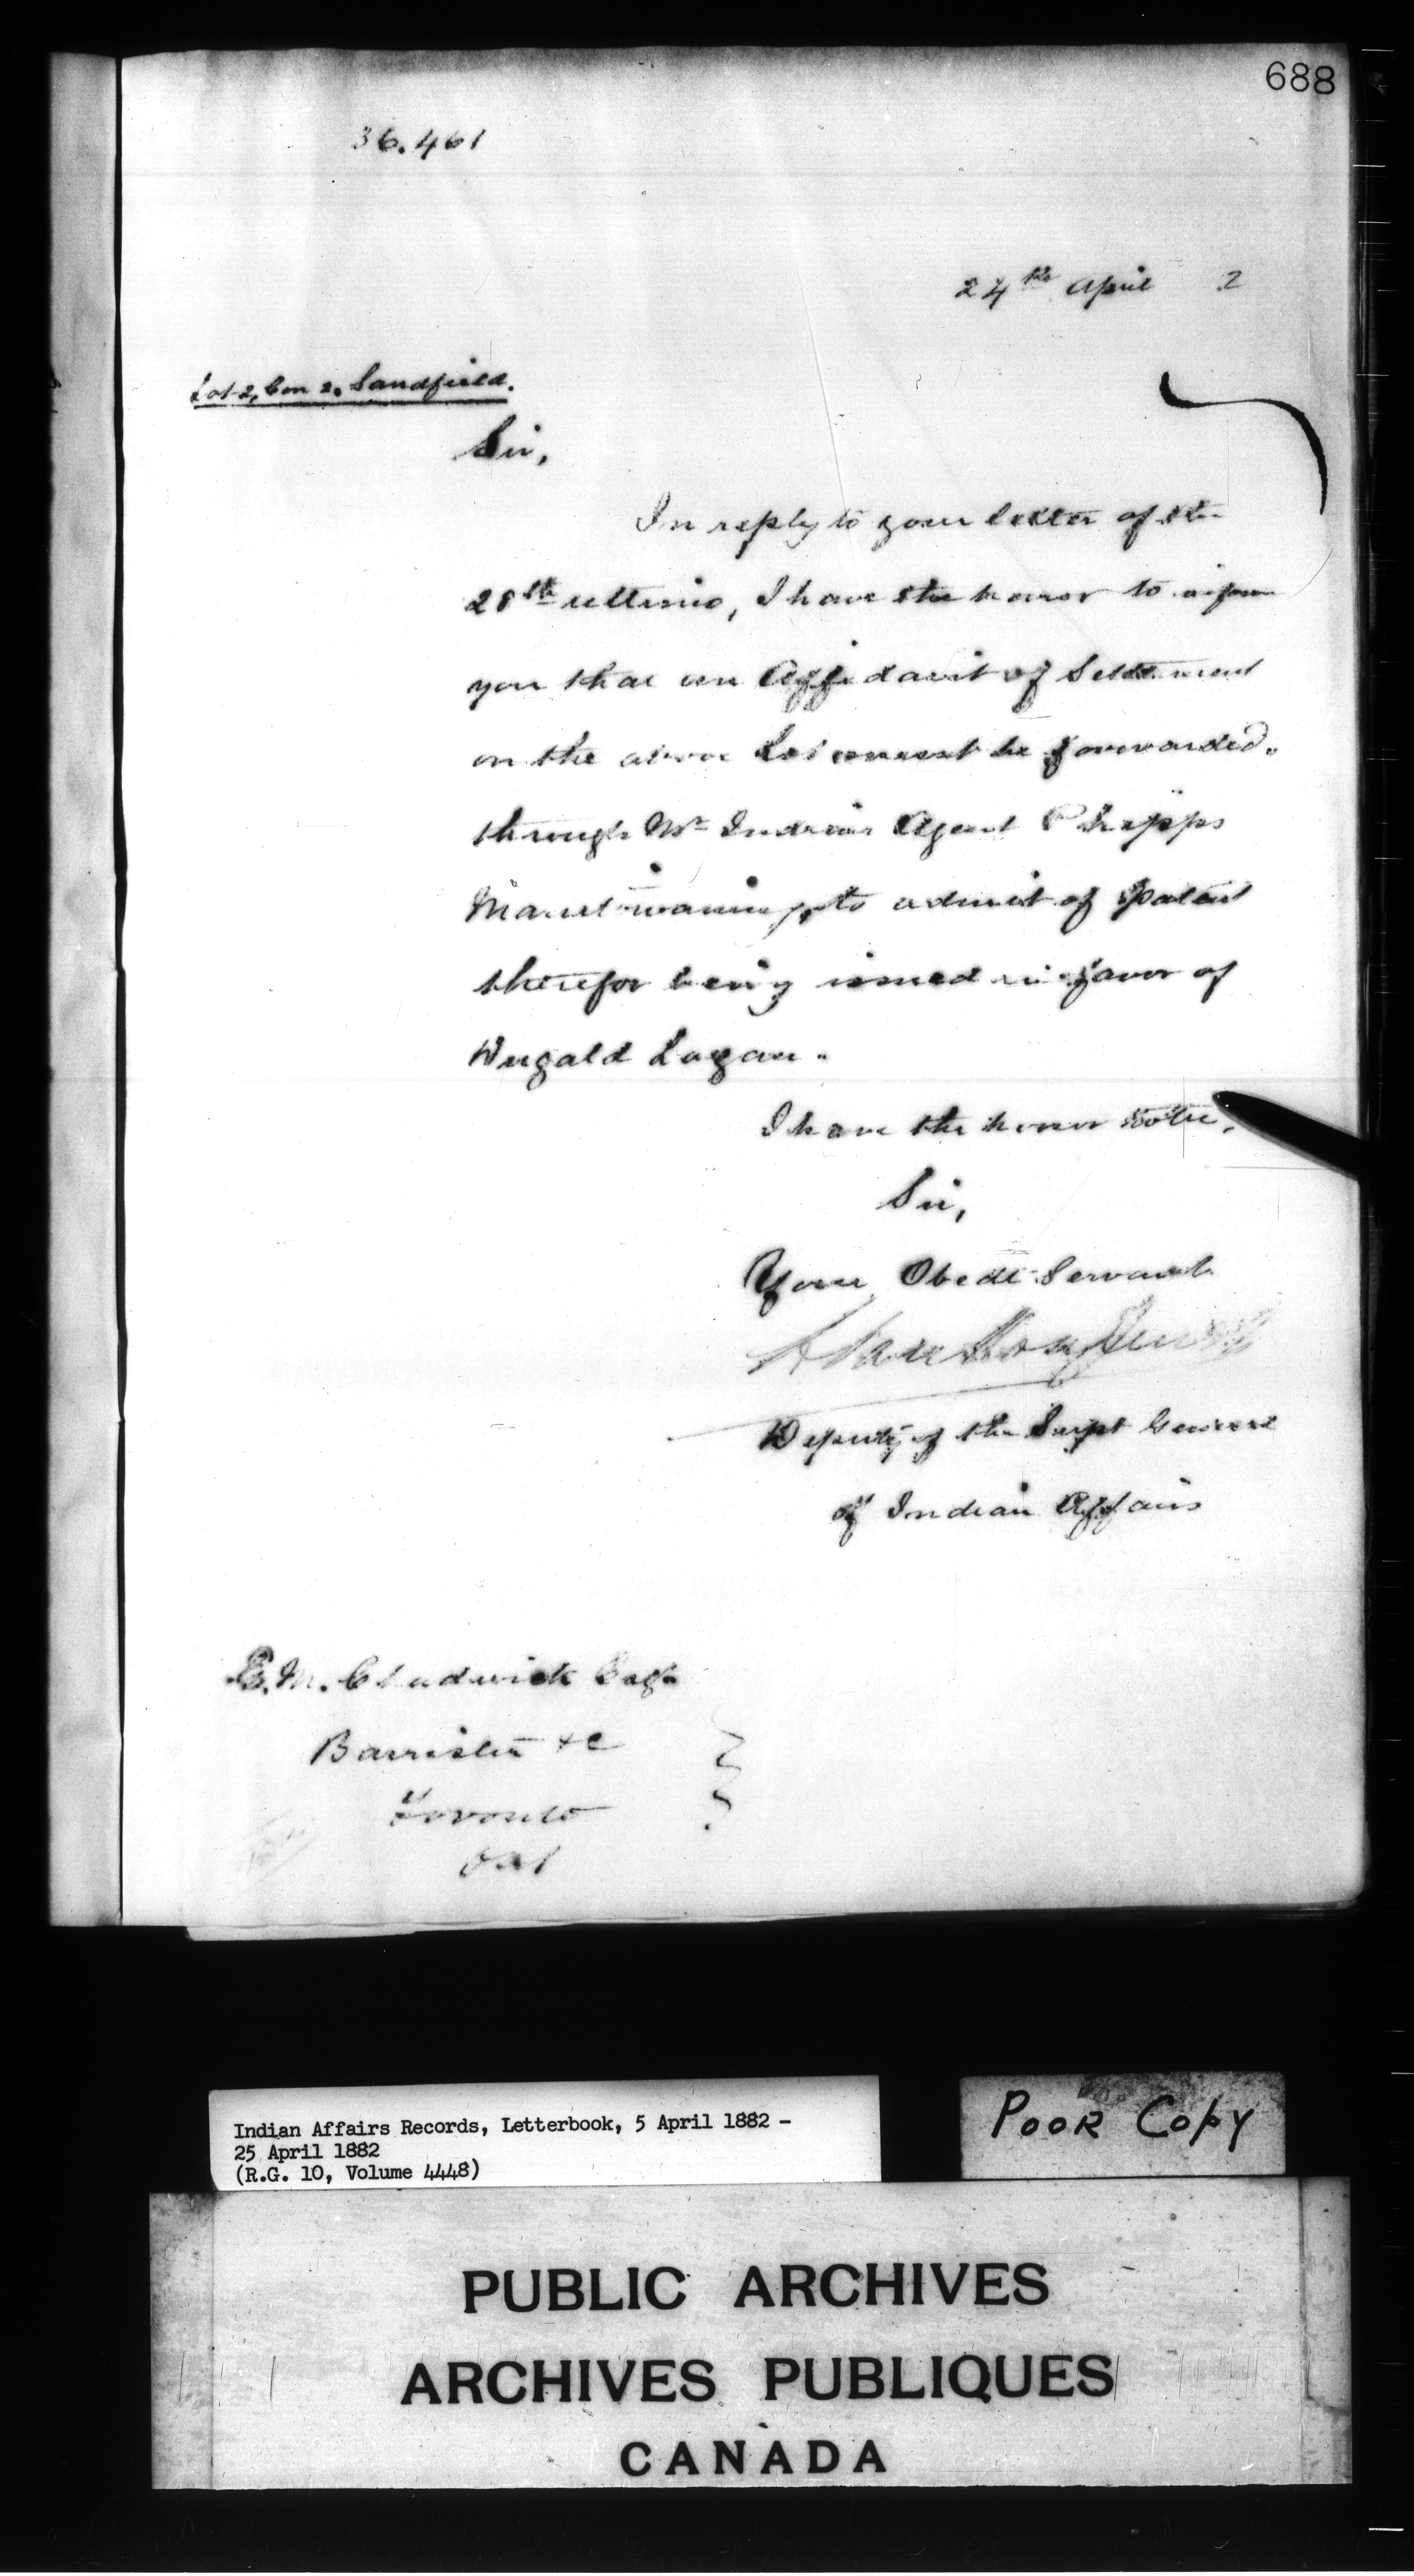 688
36.461
24th April 2
Lot 2, Con 2. Sandfield.
Sir,
In reply to your letter of the
28th ultimo, I have the honor to inform
you that an Affidavit of Settlement
on the above Lot must be forwarded
through Mr Indian Agent Phipps
Manitowaning, to admit of patent
therefor being issued in favor of
Dugald Logan.
I have the honor to be,
Sir,
Your Obedt Servant
Deputy of the Supt General
of Indian Affairs
E. M. Chadwick Esq.
Barrister &c
Toronto
Ont
Indian Affairs Records, Letterbook, 5 April 1882 -
25 April 1882
(R.G. 10, Volume 4448)
POOR COPY
PUBLIC ARCHIVES
ARCHIVES PUBLIQUES
CANADA